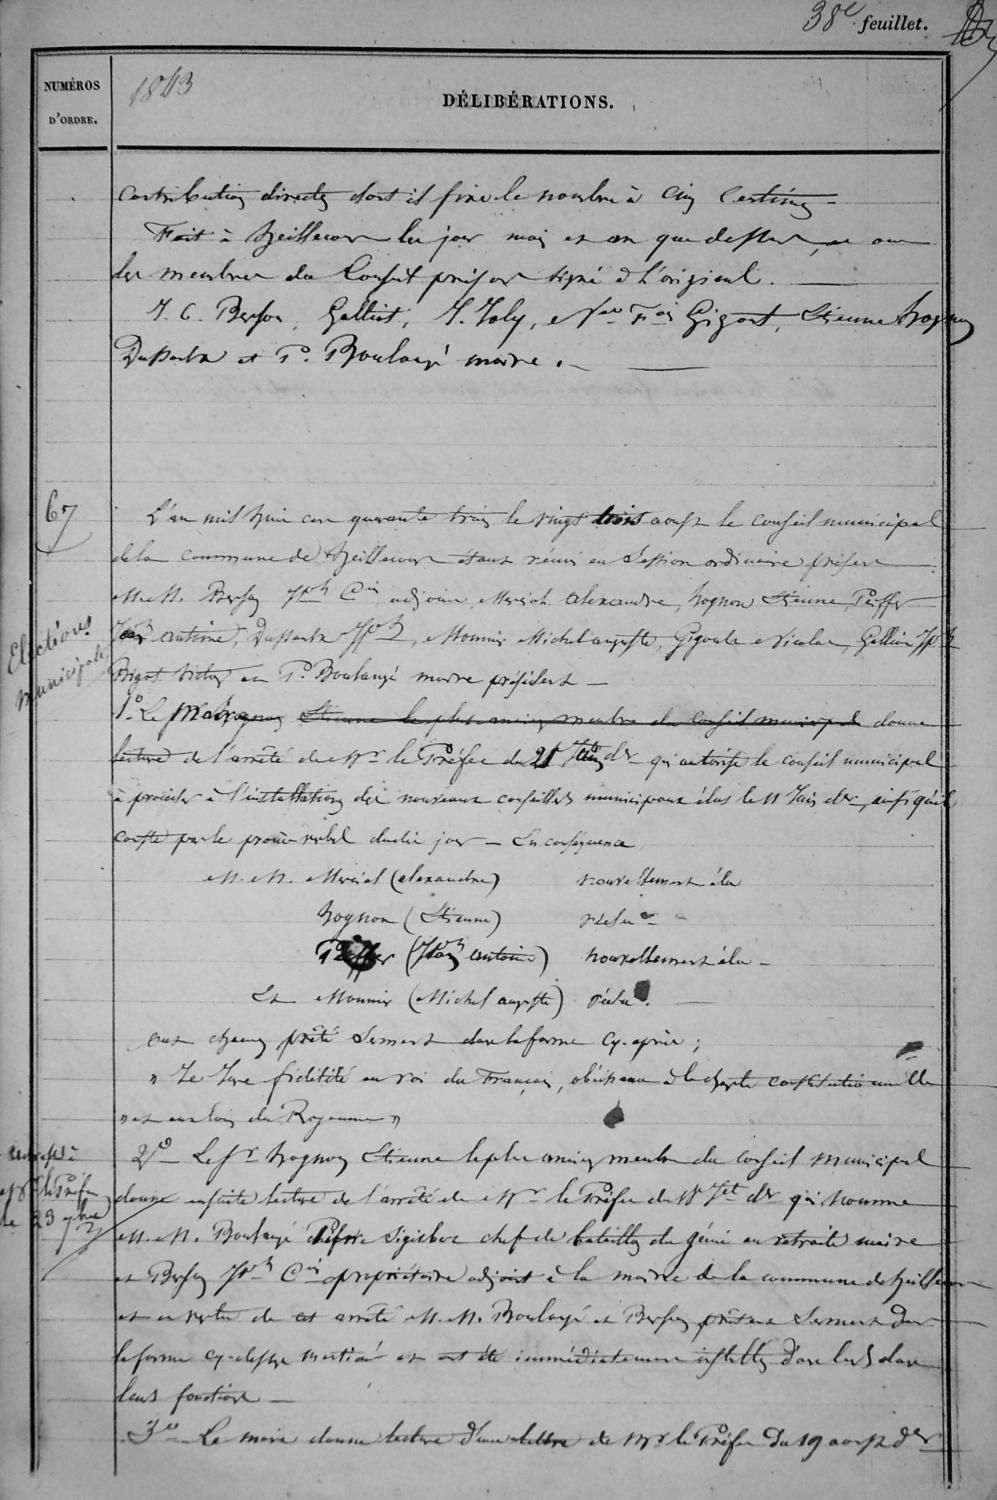 38e feuillet.
NUMÉROS
D'ORDRE.
1843
DÉLIBÉRATIONS.
Contributions directes dont il fixe le nombre à Cinq Centimes
Fait à Heillecourt les jour mois et an que dessus, et ont
les membres du Conseil présents signé à l'original.
J. C. Berson, Galliot, J. Joly, Nas Fois Gigout, Etienne Hognon
Dussart et Pre Boulangé maire.
67
L'an mil huit cent quarante trois le vingt trois aoust le conseil municipal
de la commune de Heillecourt étant réuni en Session ordinaire présents
M. M. Berson Jph Cin adjoint, Marsal alexandre, Hognon Etienne, Peiffer
Elections
municipales
Jean antoine, Jph, Mounier Michel auguste, Gigout Nicolas, Galliot Jph
Bigot Victor et Pre Boulangé maire président
1o Le Maire Etienne le plus ancien membre du Conseil municipal donne
lecture de l'arrêté de Mr le Préfet du 21 dr qui autorise le conseil municipal
à procéder à l'installation des nouveaux conseillers municipaux élus le 11 Juin dr, ainsi qu'il
conste par le procès verbal dudit jour — En conséquence
M. M. Marsal (alexandre) nouvellement élu
Hognon (Etienne) réélu
Peiffer (Jean antoine) nouvellement élu
Et Mounier (Michel auguste) réélu.
ont chacun prêté Serment dans la forme cy-après ;
" Je Jure fidélité au roi des Français, obéissance à la charte constitutionnelle
" et aux lois du Royaume "
2o Le Sr Hognon Etienne le plus ancien membre du conseil municipal
donne ensuite lecture de l'arrêté de Mr le Préfet du 18 Jet dr qui nomme
Mr le Préfet
le 23 7bre
M. M. Boulangé Pierre Sigisbert chef de bataillon du génie en retraite maire
et Berson Jph Cin propriétaire adjoint à la mairie de la commune de Heillecourt
et en vertu de cet arrêté M. M. Boulangé et Berson prêtent Serment dans
la forme cy-dessus mentionné et ont été immédiatement installés dans
leurs fonctions
3o Le maire donne lecture d'une lettre de Mr le Préfet du 19 aoust der